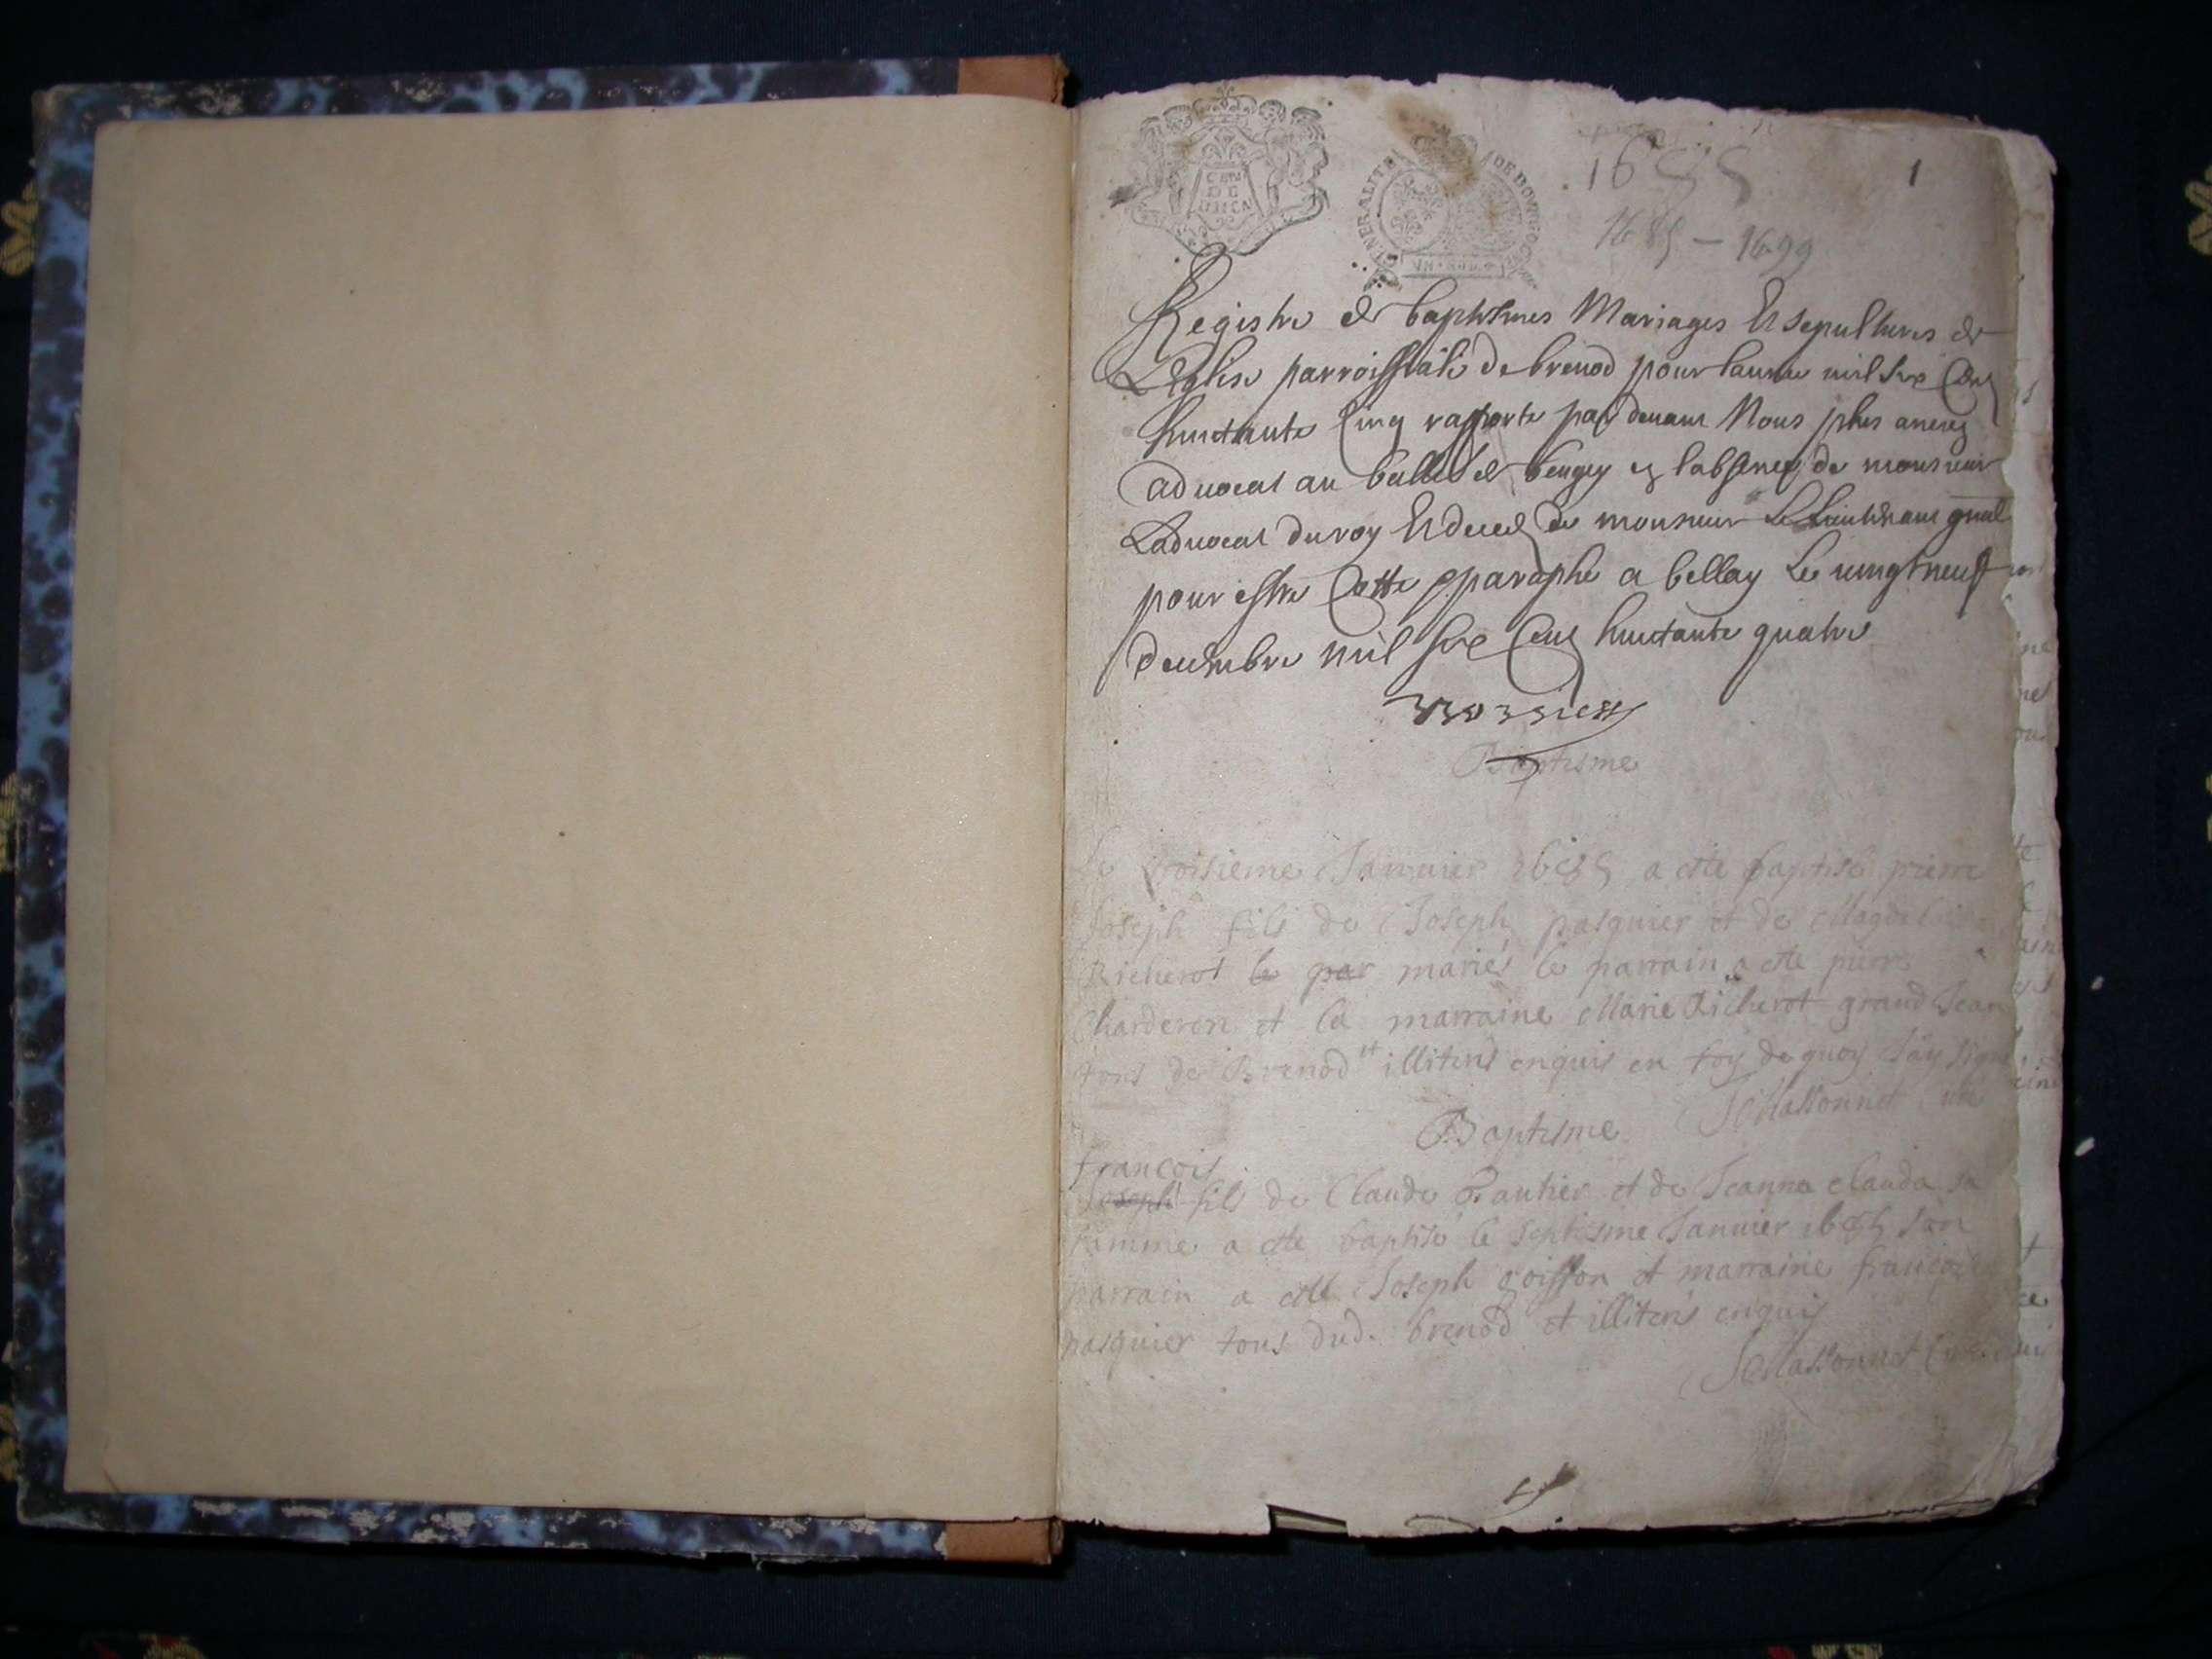 1685
1
1685 - 1699
GENERALITE DE BOURGOGNE
Registre de baptesmes Mariages Et sepultures de
Leglise parroissiale de brenod pour lannee mil six Cens
huictante Cinq rapporte par devant Nous plus ancien
advocat au balliage de beugey en labsence de monsieur
Ladvocat du roy Et de celuy de monsieur Le Lieutenant gnal
pour estre Cotte & paraphe a bellay Le vingt neuf
decembre mil six Cens huictante quatre
Baptisme
Le troisieme Janvier 1685 a este baptisé pierre
Joseph fils de Joseph pasquier et de Magdeleine
Richerot le par mariés le parrain a este pierre
Charderon et la marraine Marie Richerot grand Jean
tous de Brenod et illiterés enquis en foy de quoy J'ay signé
Baptisme JMassonnet
françois
Joseph fils de Claude Gautier et de Jeanna clauda sa
femme a este baptisé le septieme Janvier 1685 son
parrain a este Joseph goiffon et marraine françoise
pasquier tous dud. brenod et illiterés enquis
JMassonnet Curé